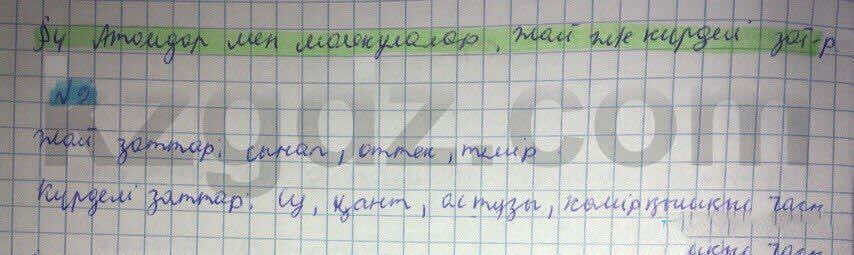 §4 Атомдар мен молекулалар, жай ж/е күрделі зат-р
№2
Жай заттар: сынап, оттек, темір
Күрделі заттар: су, қант, ас тұзы, көмірқышқыл газы
kzgdz.com